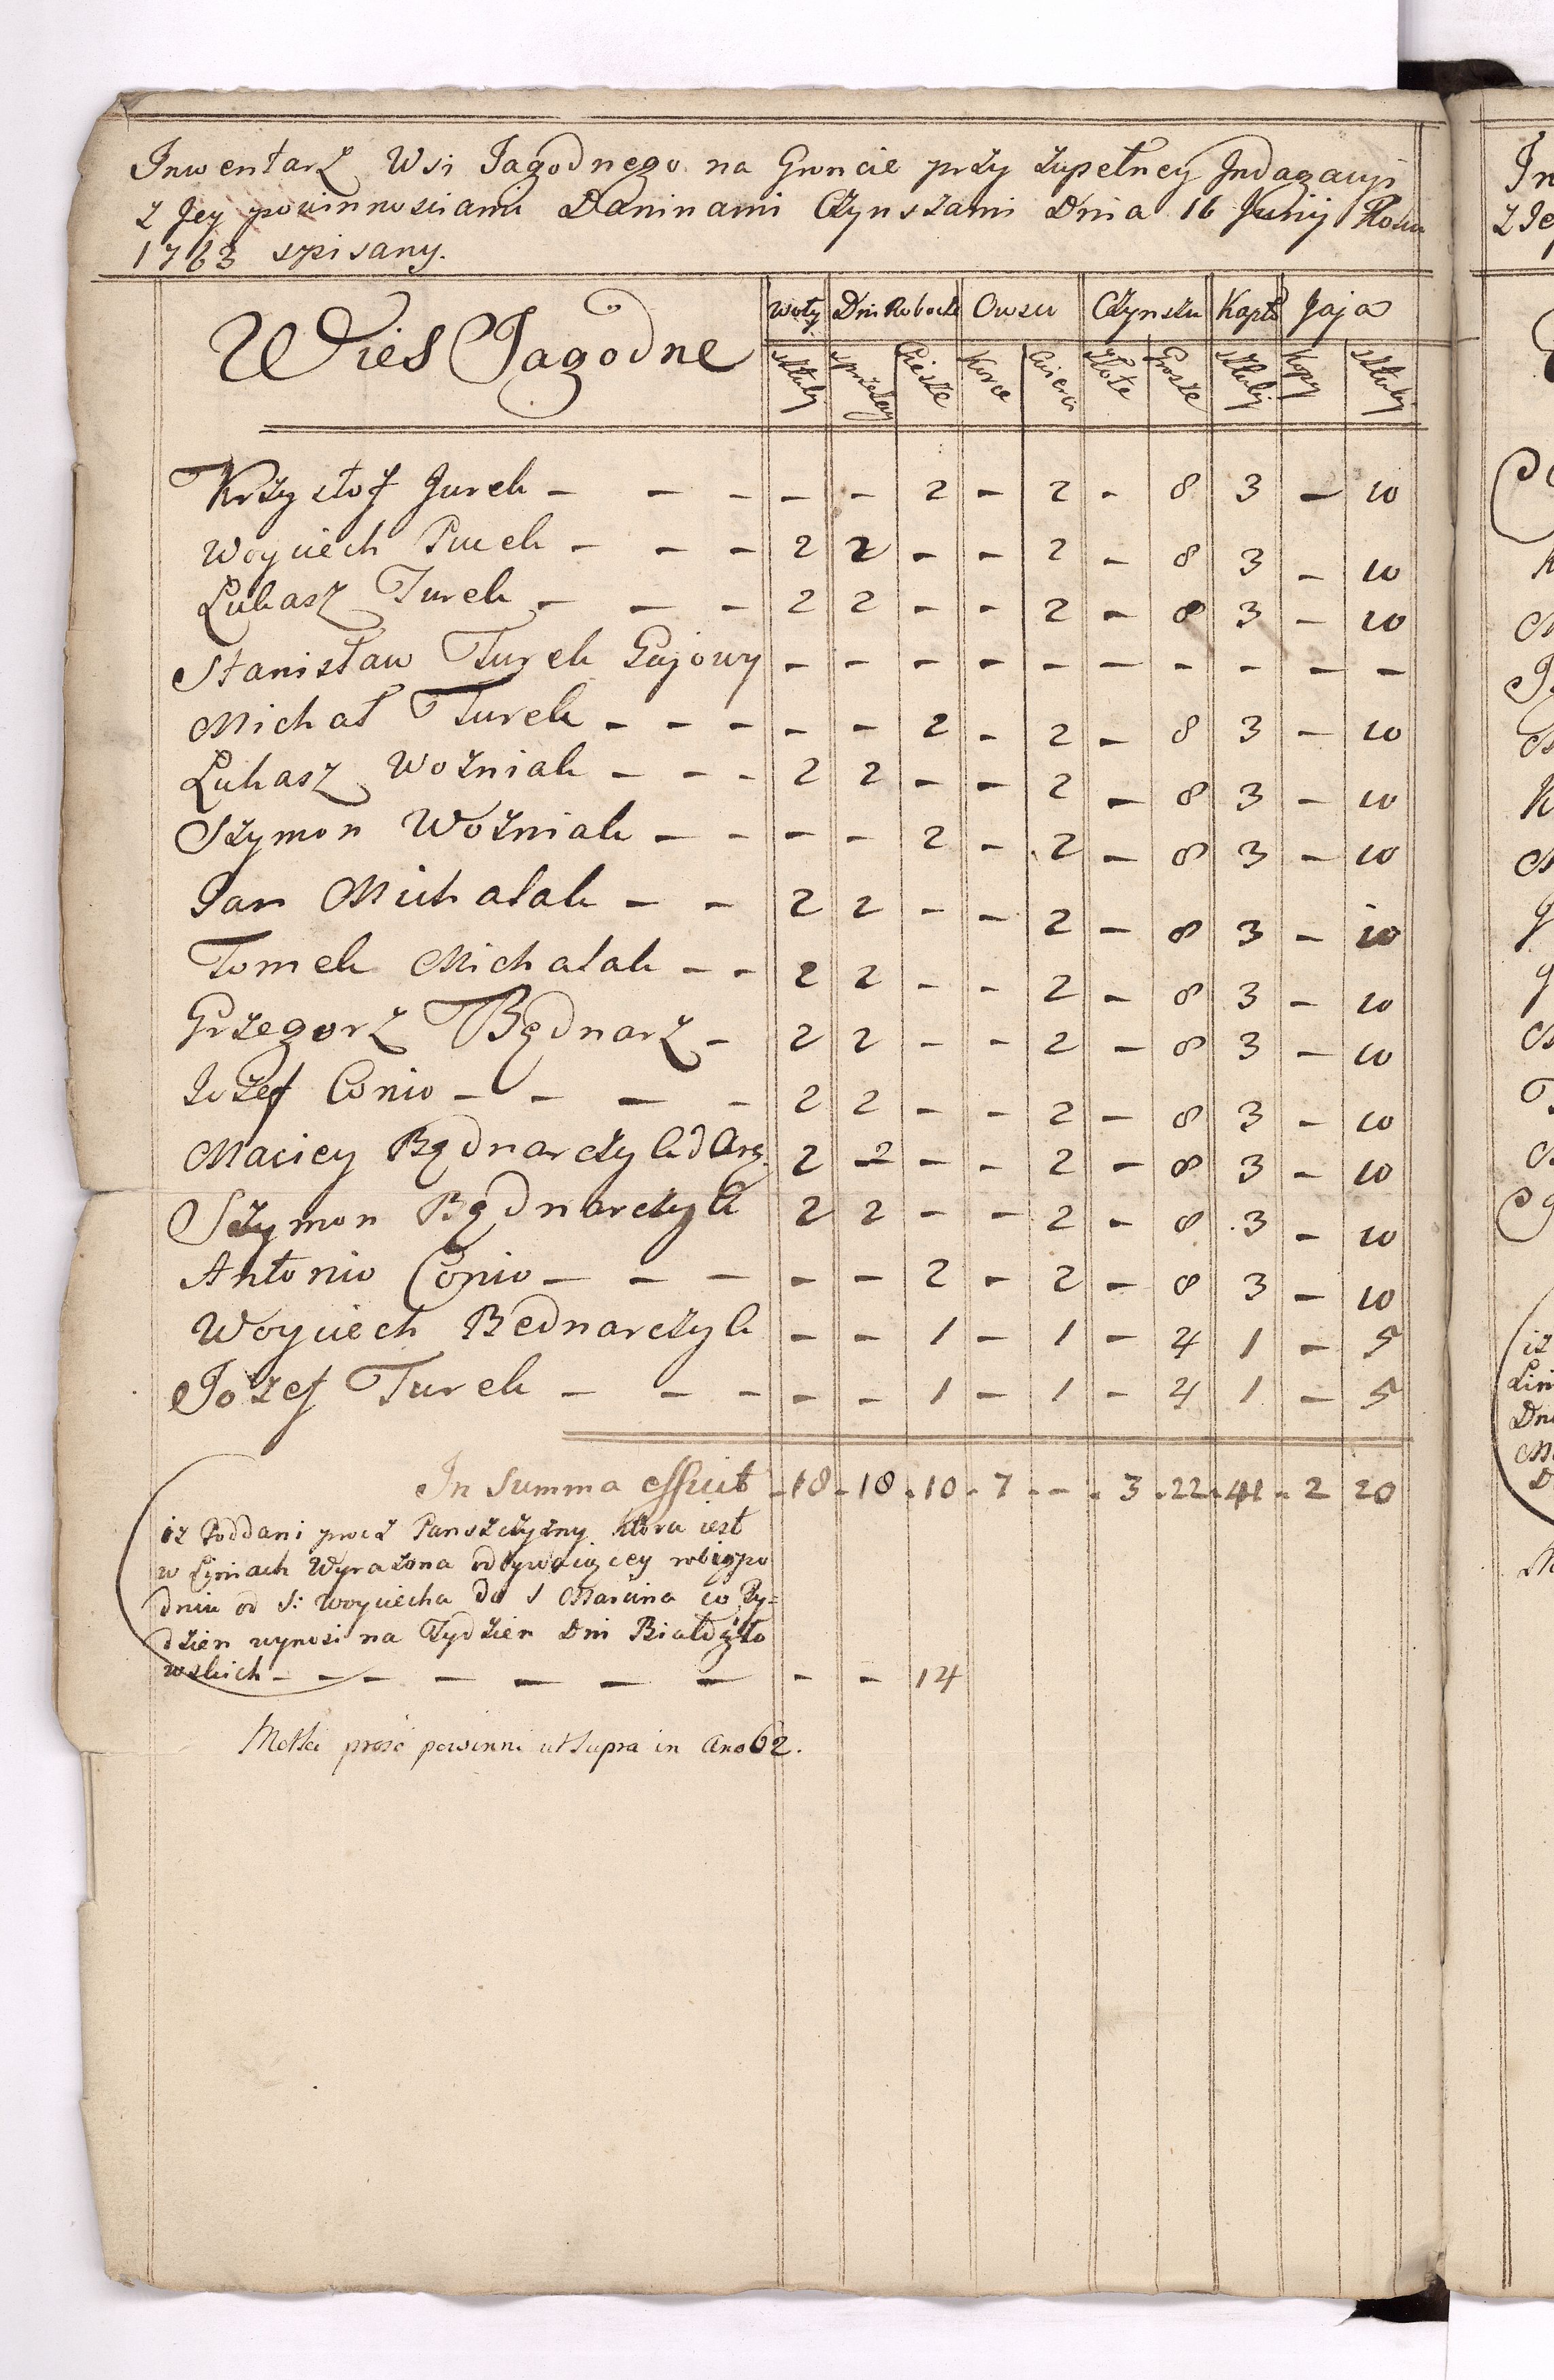 Inwentarz Wsi Jagodnego na Gruncie przy zupełney Jndagacyi
z Jey powinnosciami Daninami Czynszami Dnia 16 Junij Roku
1763 spisany.
Wies Jagodne
Woły Dni Robocze Owsu Czynszu Kapło Jaja
Sztuky sprzezay Piesze Korce Cwierci Złote Grosze Sztuky Kopy Sztuky
Krzysztof Jurek - - - - - 2 - 2 - 8 3 - 10
Woyciech Pucek - - - 2 2 - - 2 - 8 3 - 10
Lukasz Turek - - - 2 2 - - 2 - 8 3 - 10
Stanisław Turek Gajowy - - - - - - - - - -
Michał Turek - - - - - 2 - 2 - 8 3 - 10
Lukasz Wozniak - - - 2 2 - - 2 - 8 3 - 10
Szymon Wozniak - - - - 2 - 2 - 8 3 - 10
Jan Michalak - - 2 2 - - 2 - 8 3 - 10
Tomek Michalak - - 2 2 - - 2 - 8 3 - 10
Grzegorz Będnarz - 2 2 - - 2 - 8 3 - 10
Jozef Conio - - - - 2 2 - - 2 - 8 3 - 10
Maciey Będnarczyk 2 2 - - 2 - 8 3 - 10
Szymon Będnarczyk 2 2 - - 2 - 8 3 - 10
Antonio Conio - - - - - 2 - 2 - 8 3 - 10
Woyciech Bednarczyk - - 1 - 1 - 4 1 - 5
Jozef Turek - - - - - 1 - 1 - 4 1 - 5
In Summa efficit - 18 - 18 . 10 - 7 - - . 3 . 22 . 41 - 2 20
iz Poddani procz Panszczyzny ktora iest
w Liniach Wyrazona odbywaiącey robią po
dniu od S: Woyciecha do S Marcina co Ty=
dzien wynosi na Tydzien Dni
wskich - - - - - - - - 14
Motki prząść powinni ut Supra in Ano 62.